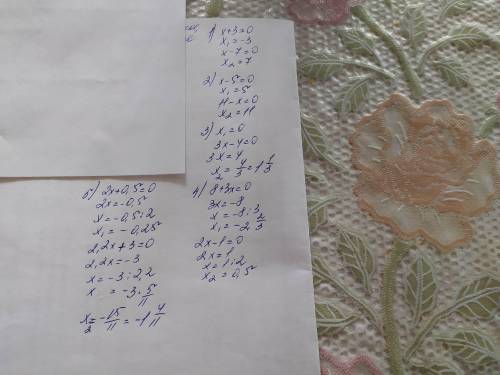 1) x+3=0
x₁=-3
x-7=0
x₂=7
2) x-5=0
x₁=5
11-x=0
x₂=11
3) x₁=0
3x-4=0
3x=4
x₂=4/3=1 1/3
4) 8+3x=0
3x=-8
x=-8:3
x₁=-2 2/3
2x-1=0
2x=1
x=1:2
x₂=0,5
5) 2x+0,5=0
2x=-0,5
x=-0,5:2
x₁=-0,25
2,2x+3=0
2,2x=-3
x=-3:2,2
x =-3·5/11
x₂=-15/11=-1 4/11